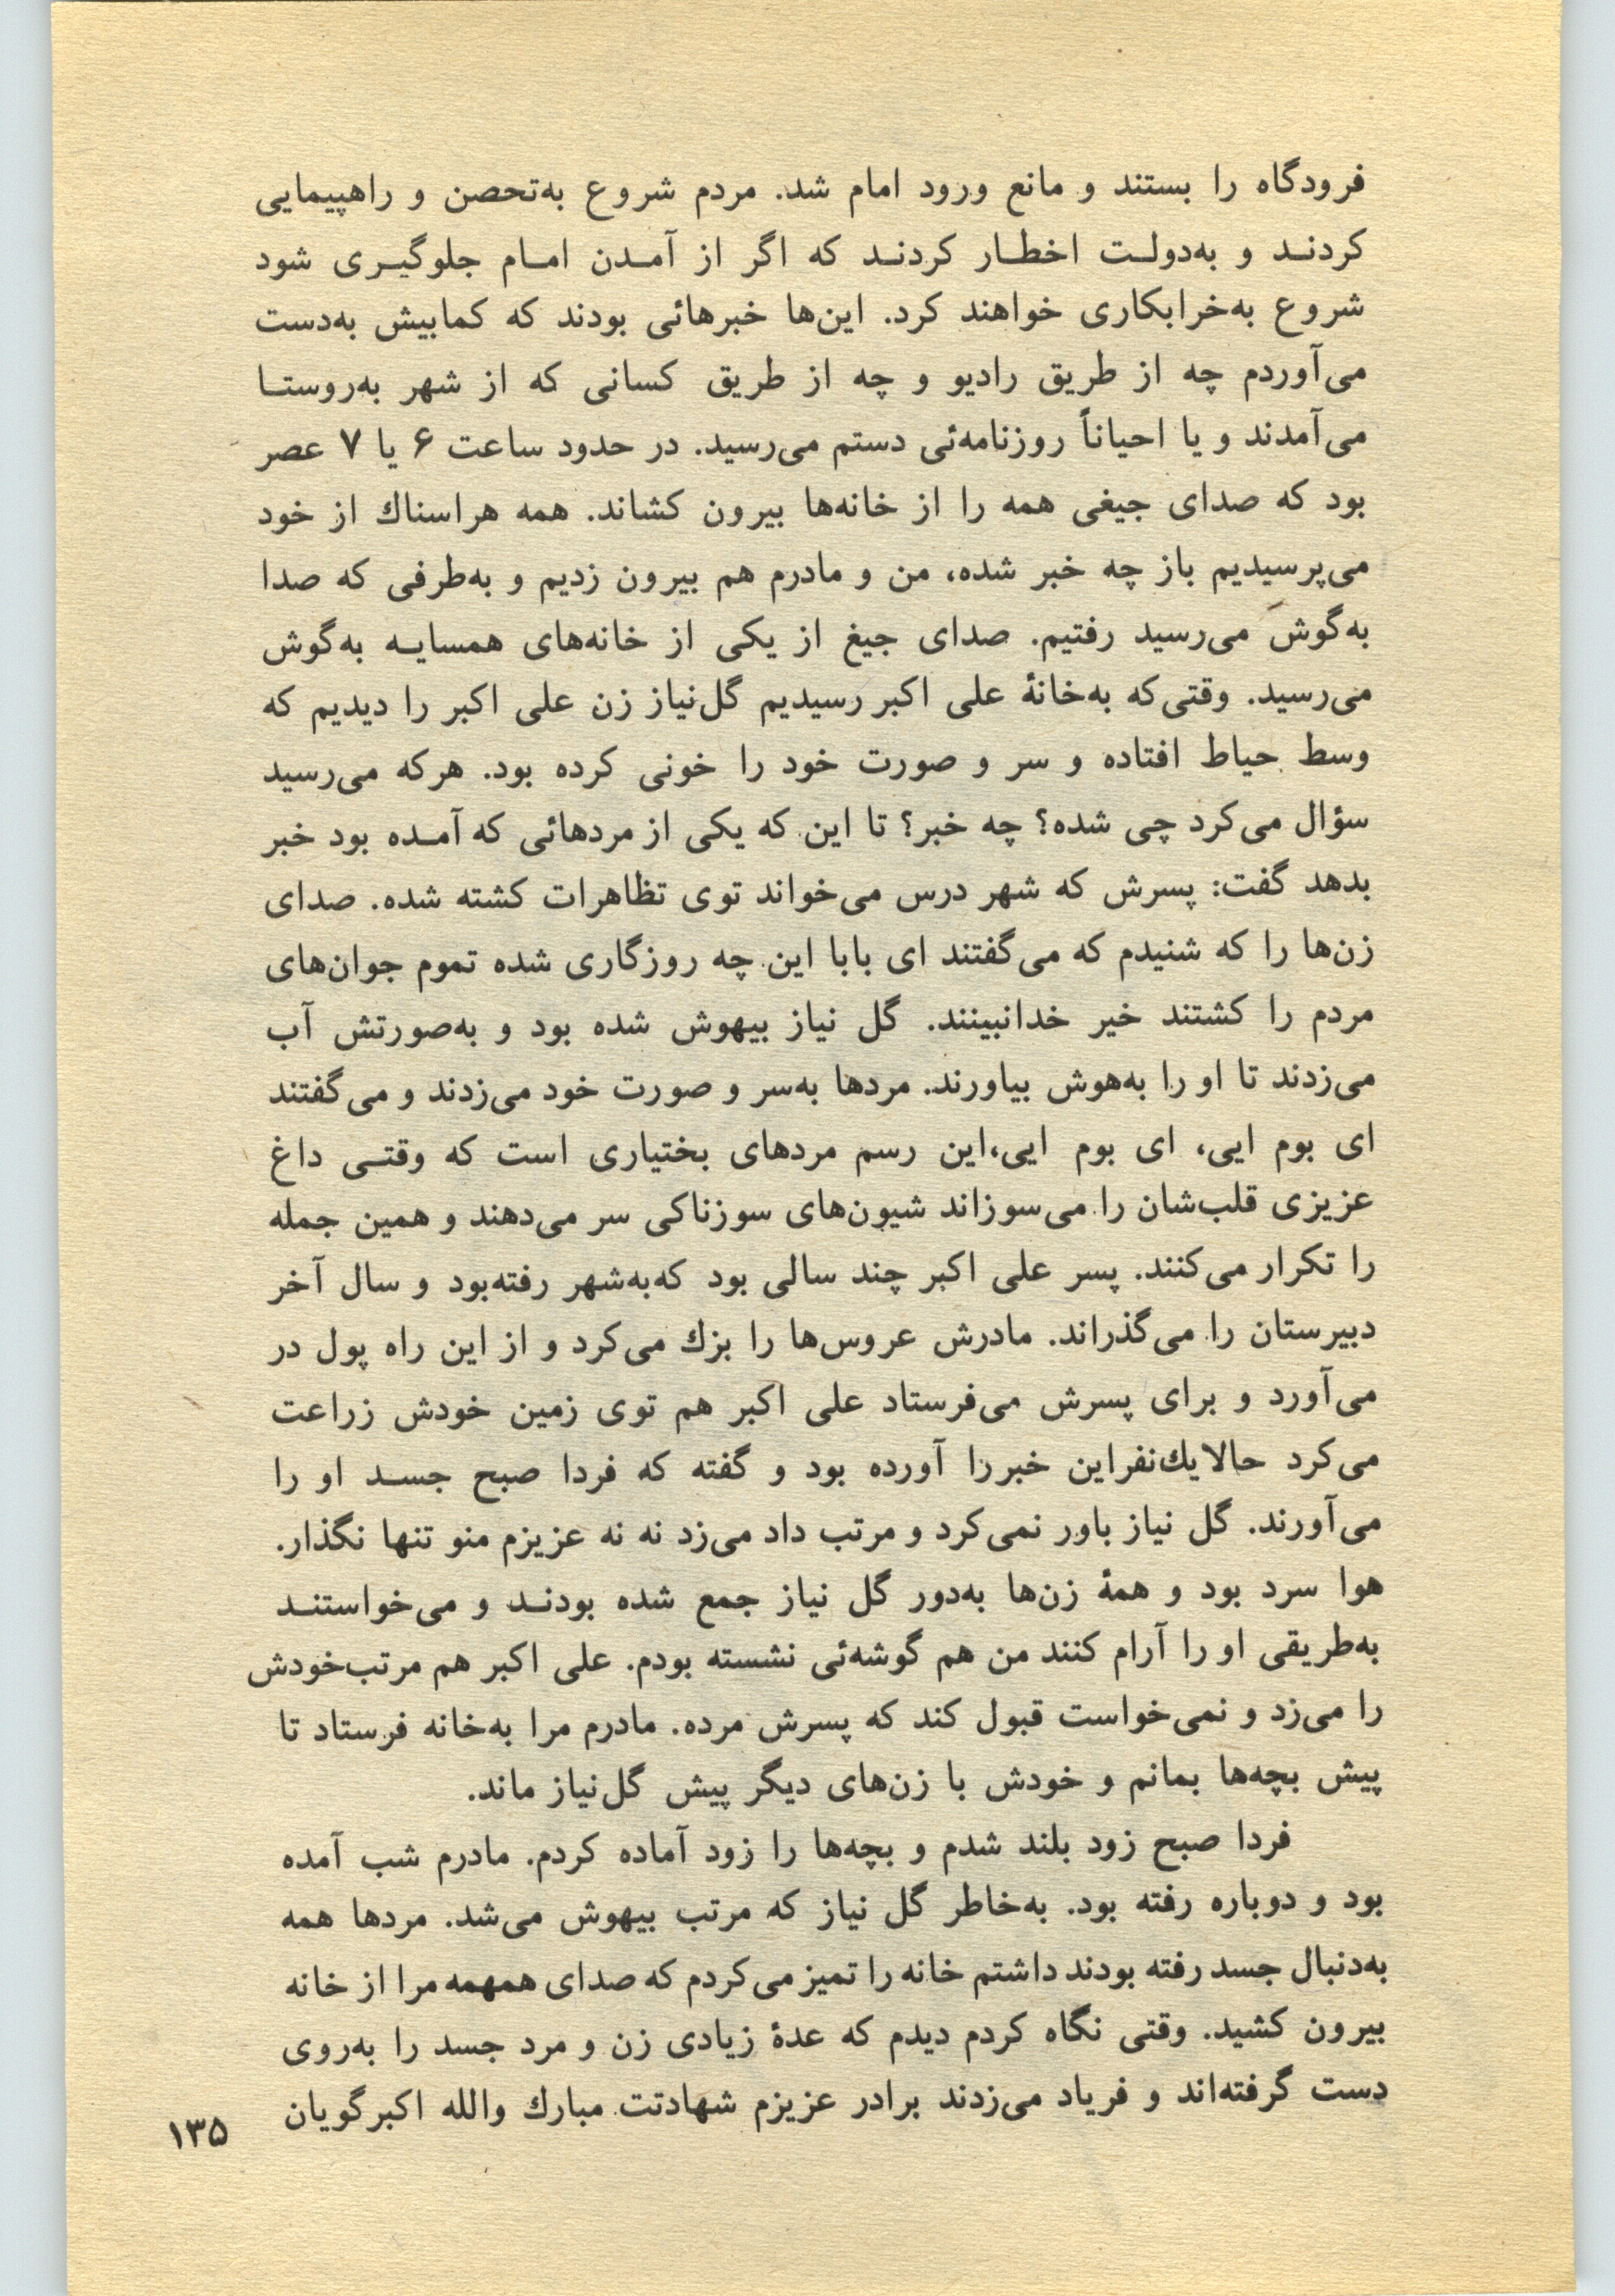 فرودگاه را بستند و مانع ورود امام شد. مردم شروع به‌تحصن و راهپیمایی
کردنـد و به‌دولـت اخطـار کردنـد که اگر از آمـدن امـام جلوگیـری شود
شروع به‌خرابکاری خواهند کرد. این‌ها خبرهائی بودند که کمابیش به‌دست
می‌آوردم چه از طریق رادیو و چه از طریق کسانی که از شهر به‌روستـا
می‌آمدند و یا احیاناً روزنامه‌ئی دستم می‌رسید. در حدود ساعت ۶ یا ۷ عصر
بود که صدای جیغی همه را از خانه‌ها بیرون کشاند. همه هراسناك از خود
می‌پرسیدیم باز چه خبر شده، من و مادرم هم بیرون زدیم و به‌طرفی که صدا
به‌گوش می‌رسید رفتیم. صدای جیغ از یکی از خانه‌های همسایـه به‌گوش
می‌رسید. وقتی‌که به‌خانهٔ علی اکبر رسیدیم گل‌نیاز زن علی اکبر را دیدیم که
وسط حیاط افتاده و سر و صورت خود را خونی کرده بود. هرکه می‌رسید
سؤال می‌کرد چی شده؟ چه خبر؟ تا این که یکی از مردهائی که آمـده بود خبر
بدهد گفت: پسرش که شهر درس می‌خواند توی تظاهرات کشته شده. صدای
زن‌ها را که شنیدم که می‌گفتند ای بابا این چه روزگاری شده تموم جوان‌های
مردم را کشتند خیر خدانبینند. گل نیاز بیهوش شده بود و به‌صورتش آب
می‌زدند تا او را به‌هوش بیاورند. مردها به‌سر و صورت خود می‌زدند و می‌گفتند
ای بوم ایی، ای بوم ایی،این رسم مردهای بختیاری است که وقتـی داغ
عزیزی قلب‌شان را می‌سوزاند شیون‌های سوزناکی سر می‌دهند و همین جمله
را تکرار می‌کنند. پسر علی اکبر چند سالی بود که‌به‌شهر رفته‌بود و سال آخر
دبیرستان را می‌گذراند. مادرش عروس‌ها را بزك می‌کرد و از این راه پول در
می‌آورد و برای پسرش می‌فرستاد علی اکبر هم توی زمین خودش زراعت
می‌کرد حالایك‌نفراین خبررا آورده بود و گفته که فردا صبح جسـد او را
می‌آورند. گل نیاز باور نمی‌کرد و مرتب داد می‌زد نه نه عزیزم منو تنها نگذار.
هوا سرد بود و همهٔ زن‌ها به‌دور گل نیاز جمع شده بودنـد و می‌خواستنـد
به‌طریقی او را آرام کنند من هم گوشه‌ئی نشسته بودم. علی اکبر هم مرتب‌خودش
را می‌زد و نمی‌خواست قبول کند که پسرش مرده. مادرم مرا به‌خانه فرستاد تا
پیش بچه‌ها بمانم و خودش با زن‌های دیگر پیش گل‌نیاز ماند.
فردا صبح زود بلند شدم و بچه‌ها را زود آماده کردم. مادرم شب آمده
بود و دوباره رفته بود. به‌خاطر گل نیاز که مرتب بیهوش می‌شد. مردها همه
به‌دنبال جسد رفته بودند داشتم خانه را تمیز می‌کردم که صدای همهمه مرا از خانه
بیرون کشید. وقتی نگاه کردم دیدم که عدهٔ زیادی زن و مرد جسد را به‌روی
دست گرفته‌اند و فریاد می‌زدند برادر عزیزم شهادتت مبارك والله اکبرگویان
۱۳۵